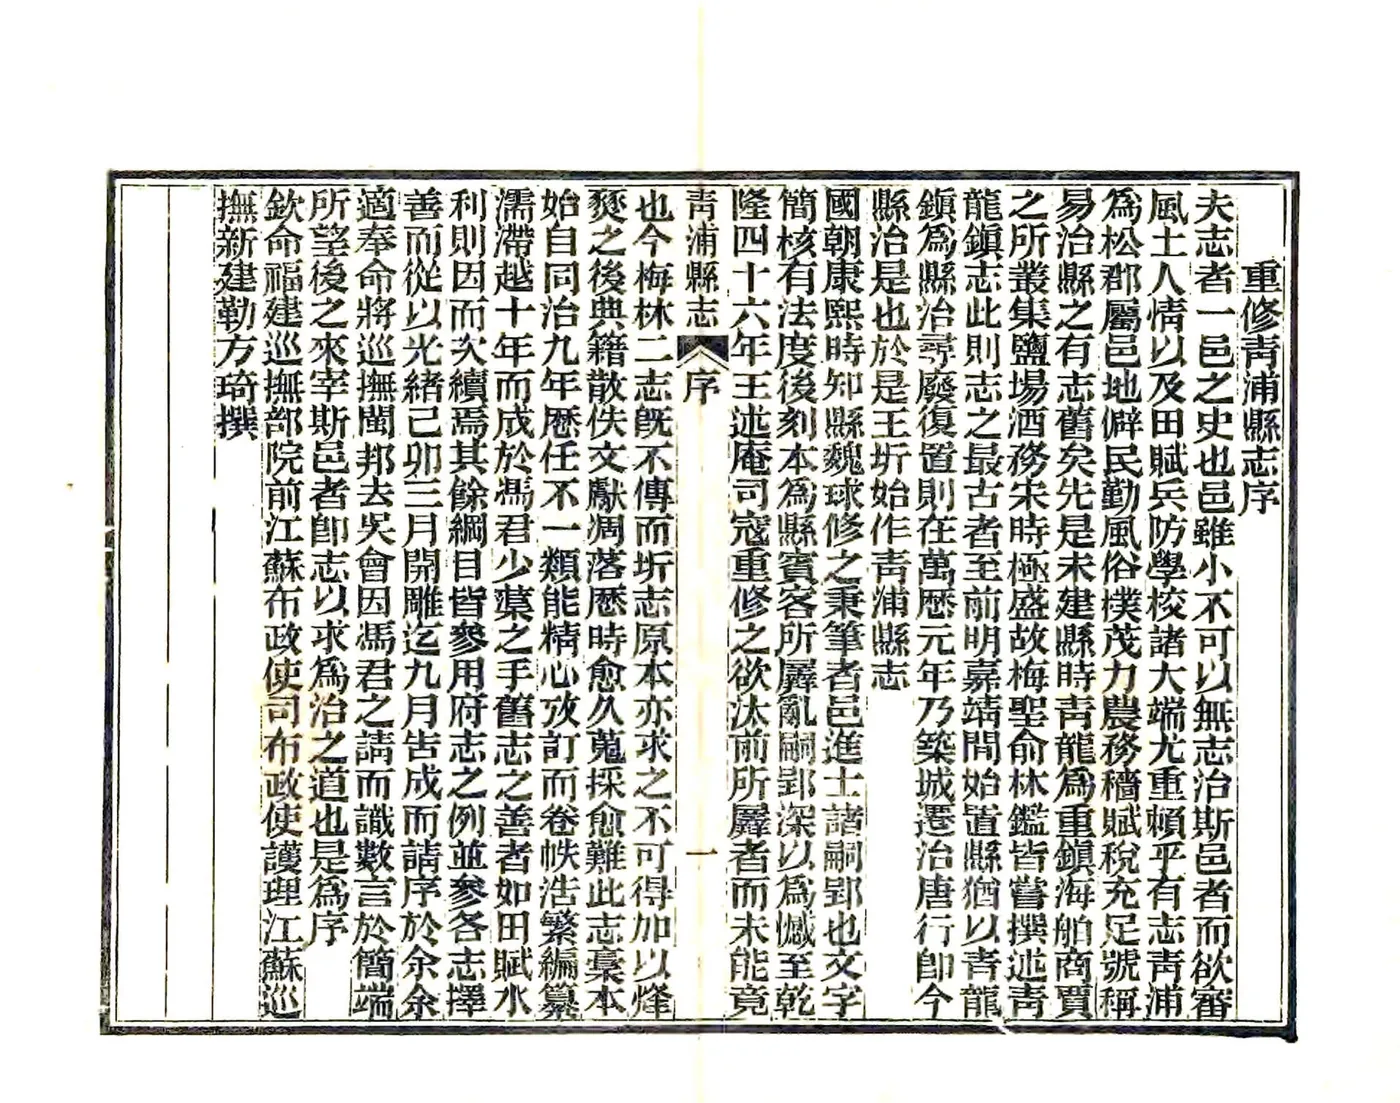 重修靑浦縣志序
夫志者一邑之史也邑雖小不可以無志治斯邑者而欲審
風土人情以及田賦兵防學校諸大端尤重賴乎有志靑浦
爲松郡屬邑地僻民勤風俗樸茂力農務穡賦稅充足號稱
易治縣之有志舊矣先是未建縣時靑龍爲重鎭海舶商賈
之所叢集鹽場酒務宋時極盛故梅聖俞林鑑皆嘗撰述靑
龍鎭志此則志之最古者至前明嘉靖閒始置縣猶以靑龍
鎭爲縣治尋廢復置則在萬厯元年乃築城遷治唐行卽今
縣治是也於是王圻始作靑浦縣志
國朝康熙時知縣魏球修之秉筆者邑進士諸嗣郢也文字
簡核有法度後刻本爲縣賓客所羼亂嗣郢深以爲憾至乾
隆四十六年王述庵司寇重修之欲汰前所羼者而未能竟
靑浦縣志 序 一
也今梅林二志旣不傳而圻志原本亦求之不可得加以烽
燹之後典籍散佚文獻凋落厯時愈久蒐採愈難此志稾本
始自同治九年厯任不一類能精心攷訂而卷帙浩繁編纂
濡滯越十年而成於馮君少蕖之手舊志之善者如田賦水
利則因而次續焉其餘綱目皆參用府志之例並參各志擇
善而從以光緒己卯三月開雕迄九月告成而請序於余余
適奉命將巡撫閩邦去吳會因馮君之請而識數言於簡端
所望後之來宰斯邑者卽志以求爲治之道也是爲序
欽命福建巡撫部院前江蘇布政使司布政使護理江蘇巡
撫新建勒方琦撰